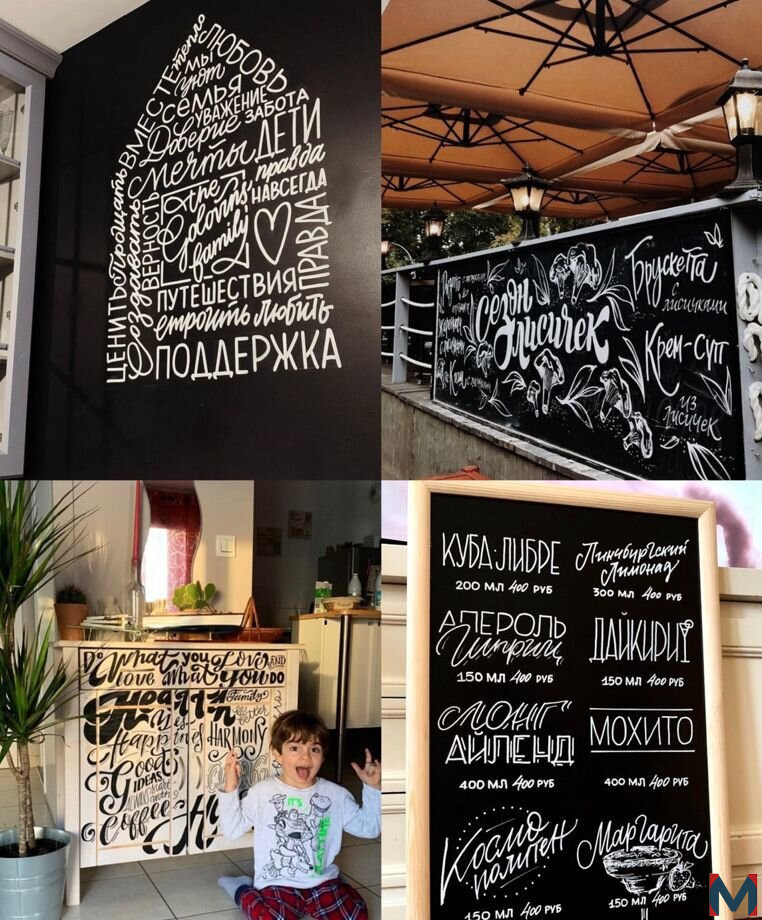 тепло
ЛЮБОВЬ
МЫ
уют
ВМЕСТЕ
семья
УВАЖЕНИЕ
Доверие ЗАБОТА
Мечты ДЕТИ
Прощать
правда
ВЕРНОСТЬ
НАВСЕГДА
the
loving
family
ЦЕНИТЬ
Создавать
ПРАВДА
ПУТЕШЕСТВИЯ
строить любить
ПОДДЕРЖКА
Сезон
Лисичек
Брускетта
с
лисичками
Крем-суп
из
лисичек
Do What you Love AND
love What you DO
Family
HARMONY
Good
IDEAS
ALWAYS
Coffee
IT'S
КУБА-ЛИБРЕ
200 МЛ 400 РУБ
Линчбургский
Лимонад
300 МЛ 400 РУБ
АПЕРОЛЬ
Шприц
150 МЛ 400 РУБ
ДАЙКИРИ
150 МЛ 400 РУБ
"ЛОНГ"
АЙЛЕНД
400 МЛ 400 РУБ
МОХИТО
400 МЛ 400 РУБ
Космо
политен
150 МЛ 400 РУБ
Маргарита
150 МЛ 400 РУБ
M